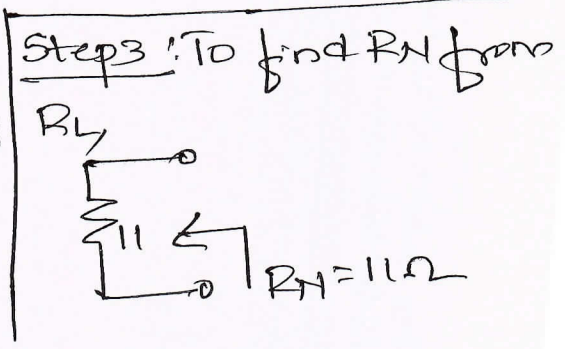 Step3 : To find RN from
RL,
11
RN = 11Ω